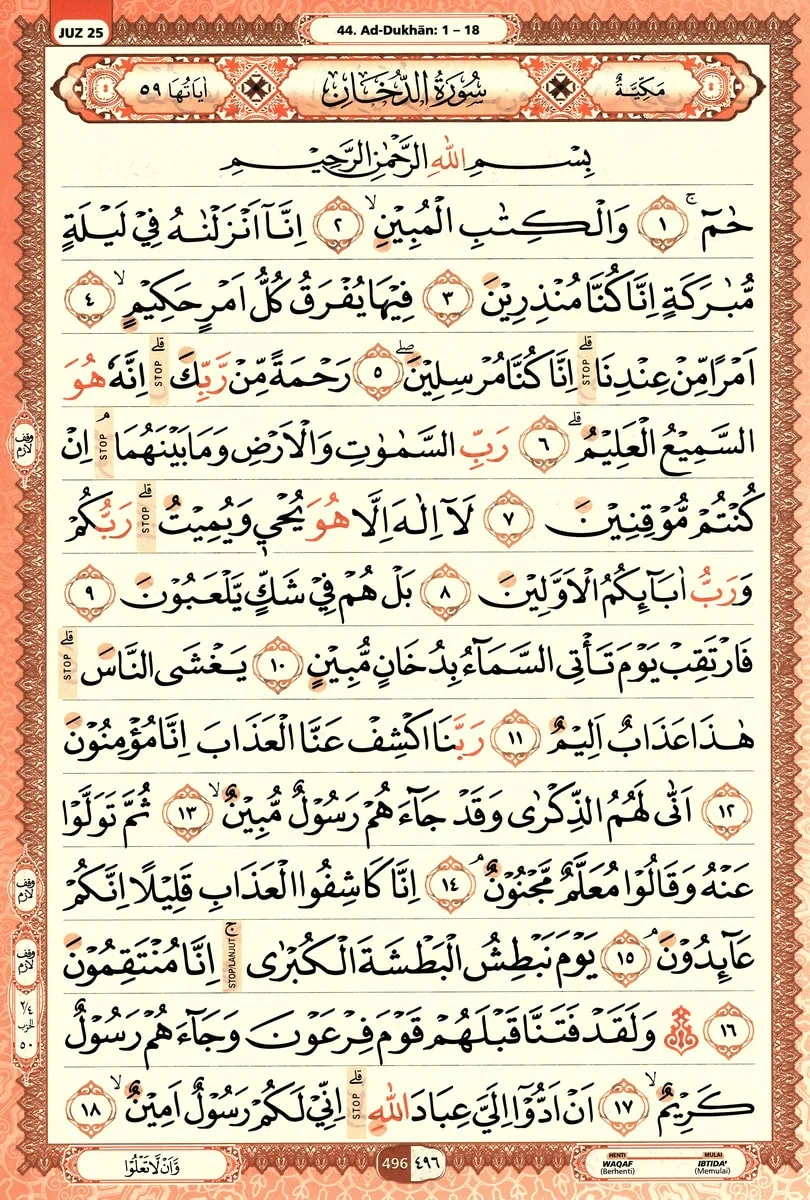 JUZ 25
44. Ad-Dukhān: 1 – 18
مَكِّيَّةٌ
سُوْرَةُ الدُّخَانِ
اٰيَاتُهَا ٥٩
بِسْمِ اللّٰهِ الرَّحْمٰنِ الرَّحِيْمِ
حٰمۤ ۚ ١ وَالْكِتٰبِ الْمُبِيْنِ ۙ ٢ اِنَّآ اَنْزَلْنٰهُ فِيْ لَيْلَةٍ
مُّبٰرَكَةٍ اِنَّا كُنَّا مُنْذِرِيْنَ ٣ فِيْهَا يُفْرَقُ كُلُّ اَمْرٍ حَكِيْمٍ ۙ ٤
اَمْرًا مِّنْ عِنْدِنَا ۗ STOP اِنَّا كُنَّا مُرْسِلِيْنَ ۖ ٥ رَحْمَةً مِّنْ رَّبِّكَ ۗ STOP اِنَّهٗ هُوَ
السَّمِيْعُ الْعَلِيْمُ ۗ ٦ رَبِّ السَّمٰوٰتِ وَالْاَرْضِ وَمَا بَيْنَهُمَا ۘ STOP اِنْ
كُنْتُمْ مُّوْقِنِيْنَ ٧ لَآ اِلٰهَ اِلَّا هُوَ يُحْيٖ وَيُمِيْتُ ۗ STOP رَبُّكُمْ
وَرَبُّ اٰبَاۤىِٕكُمُ الْاَوَّلِيْنَ ٨ بَلْ هُمْ فِيْ شَكٍّ يَّلْعَبُوْنَ ٩
فَارْتَقِبْ يَوْمَ تَأْتِى السَّمَاۤءُ بِدُخَانٍ مُّبِيْنٍ ١٠ يَغْشَى النَّاسَ ۗ STOP
هٰذَا عَذَابٌ اَلِيْمٌ ١١ رَبَّنَا اكْشِفْ عَنَّا الْعَذَابَ اِنَّا مُؤْمِنُوْنَ
١٢ اَنّٰى لَهُمُ الذِّكْرٰى وَقَدْ جَاۤءَهُمْ رَسُوْلٌ مُّبِيْنٌ ۙ ١٣ ثُمَّ تَوَلَّوْا
عَنْهُ وَقَالُوْا مُعَلَّمٌ مَّجْنُوْنٌ ۘ ١٤ اِنَّا كَاشِفُوا الْعَذَابِ قَلِيْلًا اِنَّكُمْ
عَاۤىِٕدُوْنَ ۘ ١٥ يَوْمَ نَبْطِشُ الْبَطْشَةَ الْكُبْرٰى ۚ STOP/LANJUT اِنَّا مُنْتَقِمُوْنَ
١٦ ۞ وَلَقَدْ فَتَنَّا قَبْلَهُمْ قَوْمَ فِرْعَوْنَ وَجَاۤءَهُمْ رَسُوْلٌ
كَرِيْمٌ ۙ ١٧ اَنْ اَدُّوْٓا اِلَيَّ عِبَادَ اللّٰهِ ۗ STOP اِنِّيْ لَكُمْ رَسُوْلٌ اَمِيْنٌ ۙ ١٨
وقف لازم
وقف لازم
وقف لازم
٢/٤ الحزب ٥٠
وَّاَنْ لَّا تَعْلُوْا
496 ٤٩٦
HENTI WAQAF (Berhenti)
MULAI IBTIDA' (Memulai)